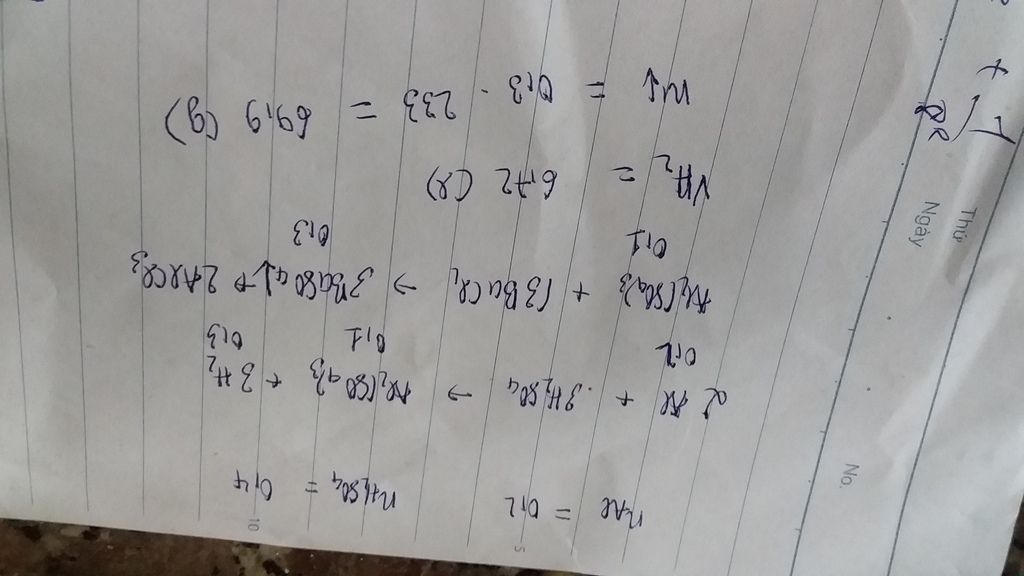 No.
Thứ
Ngày
5
10
nAl = 0,2 nH2SO4 = 0,4
2Al + 3H2SO4 → Al2(SO4)3 + 3H2
0,2 0,1 0,3
Al2(SO4)3 + 3BaCl2 → 3BaSO4↓ + 2AlCl3
0,1 0,3
VH2 = 6,72 (l)
m↓ = 0,3 . 233 = 69,9 (g)